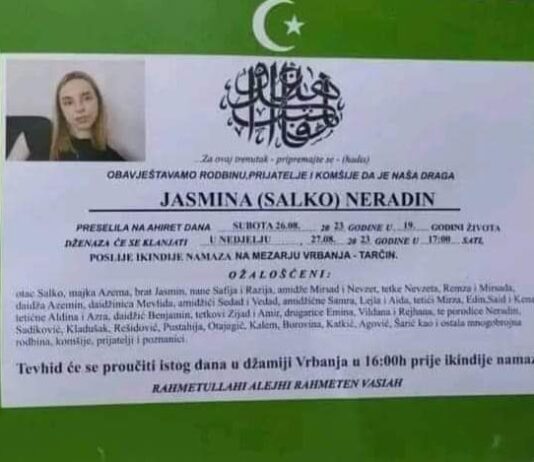 ...Za ovaj trenutak - pripremajte se - (hadis)
OBAVJEŠTAVAMO RODBINU,PRIJATELJE I KOMŠIJE DA JE NAŠA DRAGA
JASMINA (SALKO) NERADIN
PRESELILA NA AHIRET DANA SUBOTA 26.08. 20 23 GODINE U 19. GODINI ŽIVOTA
DŽENAZA ĆE SE KLANJATI U NEDJELJU 27.08. 20 23 GODINE U 17:00 SATI.
POSLIJE IKINDIJE NAMAZA NA MEZARJU VRBANJA - TARČIN.
OŽALOŠĆENI:
otac Salko, majka Azema, brat Jasmin, nane Safija i Razija, amidže Mirsad i Nevzet, tetke Nevzeta, Remza i Mirsada,
daidža Azemin, daidžinica Mevlida, amidžići Sedad i Vedad, amidžične Samra, Lejla i Aida, tetići Mirza, Edin,Said i
tetične Aldina i Azra, daidžić Benjamin, tetkovi Zijad i Amir, drugarice Emina, Vildana i Rejhana, te porodice Neradin,
Sadiković, Kladušak, Rešidović, Pustahija, Otajagić, Kalem, Borovina, Katkić, Agović, Šarić kao i ostala mnogobrojna
rodbina, komšije, prijatelji i poznanici.
Tevhid će se proučiti istog dana u džamiji Vrbanja u 16:00h prije ikindije namaz
RAHMETULLAHI ALEJHI RAHMETEN VASIAH